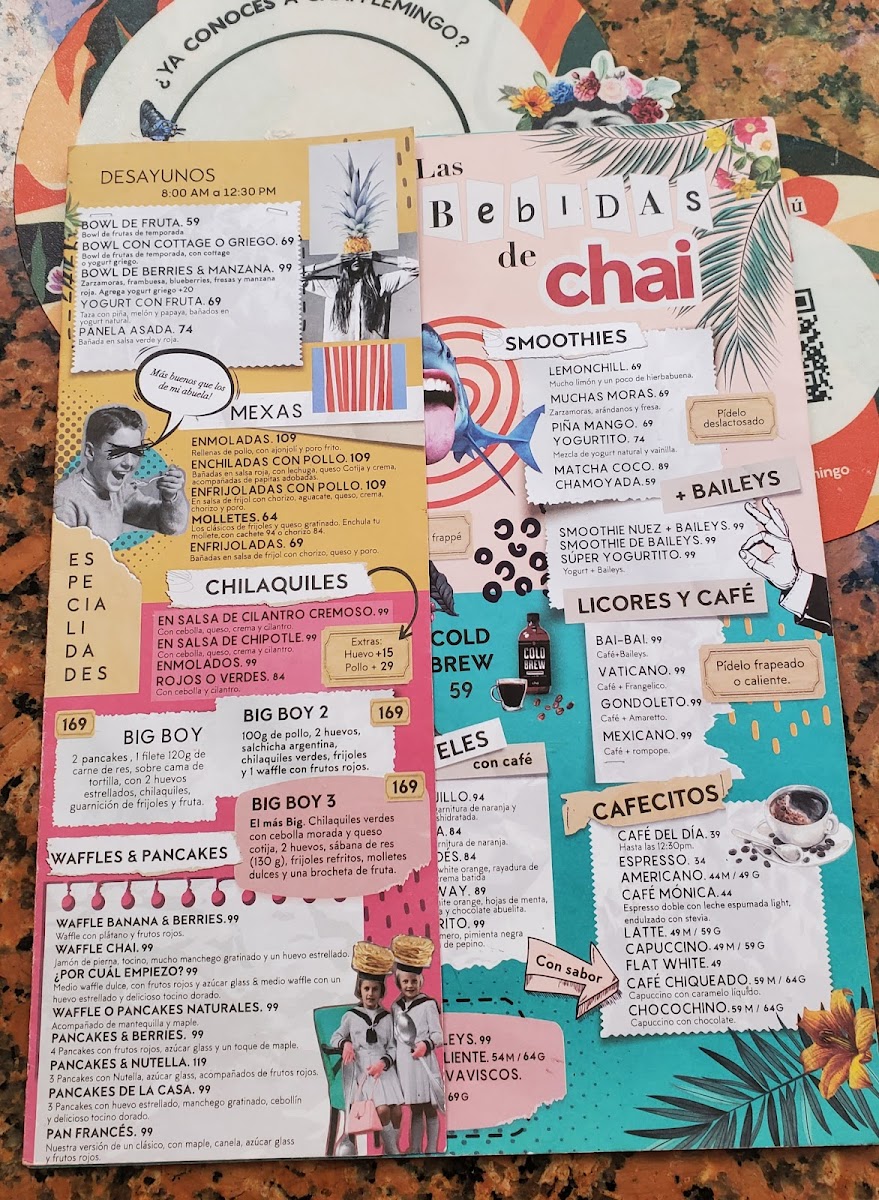 ¿YA CONOCES A CHAI FLEMINGO?
DESAYUNOS
8:00 AM a 12:30 PM
BOWL DE FRUTA. 59
Bowl de frutas de temporada
BOWL CON COTTAGE O GRIEGO. 69
Bowl de frutas de temporada, con cottage
o yogurt griego.
BOWL DE BERRIES & MANZANA. 99
Zarzamoras, frambuesa, blueberries, fresas y manzana
roja. Agrega yogurt griego +20
YOGURT CON FRUTA. 69
Taza con piña, melón y papaya, bañados en
yogurt natural.
PANELA ASADA. 74
Bañada en salsa verde y roja.
Más buenos que los
de mi abuela!
MEXAS
ENMOLADAS. 109
Rellenas de pollo, con ajonjolí y poro frito.
ENCHILADAS CON POLLO. 109
Bañadas en salsa roja, con lechuga, queso Cotija y crema,
acompañadas de papitas adobadas.
ENFRIJOLADAS CON POLLO. 109
En salsa de frijol con chorizo, aguacate, queso, crema,
chorizo y poro.
MOLLETES. 64
Los clásicos de frijoles y queso gratinado. Enchula tu
mollete, con cachete 94 o chorizo 84.
ENFRIJOLADAS. 69
Bañadas en salsa de frijol con chorizo, queso y poro.
ES
PE
CIA
LI
DA
DES
CHILAQUILES
EN SALSA DE CILANTRO CREMOSO. 99
Con cebolla, queso, crema y cilantro.
EN SALSA DE CHIPOTLE. 99
Con cebolla, queso, crema y cilantro.
ENMOLADOS. 99
ROJOS O VERDES. 84
Con cebolla y cilantro.
Extras:
Huevo +15
Pollo + 29
169
BIG BOY
2 pancakes , 1 filete 120g de
carne de res, sobre cama de
tortilla, con 2 huevos
estrellados, chilaquiles,
guarnición de frijoles y fruta.
BIG BOY 2
169
100g de pollo, 2 huevos,
salchicha argentina,
chilaquiles verdes, frijoles
y 1 waffle con frutos rojos.
169
BIG BOY 3
El más Big. Chilaquiles verdes
con cebolla morada y queso
cotija, 2 huevos, sábana de res
(130 g), frijoles refritos, molletes
dulces y una brocheta de fruta.
WAFFLES & PANCAKES
WAFFLE BANANA & BERRIES. 99
Waffle con plátano y frutos rojos.
WAFFLE CHAI. 99
Jamón de pierna, tocino, mucho manchego gratinado y un huevo estrellado.
¿POR CUÁL EMPIEZO? 99
Medio waffle dulce, con frutos rojos y azúcar glass & medio waffle con un
huevo estrellado y delicioso tocino dorado.
WAFFLE O PANCAKES NATURALES. 99
Acompañado de mantequilla y maple.
PANCAKES & BERRIES. 99
4 Pancakes con frutos rojos, azúcar glass y un toque de maple.
PANCAKES & NUTELLA. 119
3 Pancakes con Nutella, azúcar glass, acompañados de frutos rojos.
PANCAKES DE LA CASA. 99
3 Pancakes con huevo estrellado, manchego gratinado, cebollín
y delicioso tocino dorado.
PAN FRANCÉS. 99
Nuestra versión de un clásico, con maple, canela, azúcar glass
y frutos rojos.
Las
BebIDAs
de
chai
SMOOTHIES
LEMONCHILL. 69
Mucho limón y un poco de hierbabuena.
MUCHAS MORAS. 69
Zarzamoras, arándanos y fresa.
PIÑA MANGO. 69
YOGURTITO. 74
Mezcla de yogurt natural y vainilla.
MATCHA COCO. 89
CHAMOYADA. 59
Pídelo
deslactosado
+ BAILEYS
SMOOTHIE NUEZ + BAILEYS. 99
SMOOTHIE DE BAILEYS. 99
SÚPER YOGURTITO. 99
Yogurt + Baileys.
frappé
COLD
BREW
59
COLD
BREW
LICORES Y CAFÉ
BAI-BAI. 99
Café+Baileys.
VATICANO. 99
Café + Frangelico.
GONDOLETO. 99
Café + Amaretto.
MEXICANO. 99
Café + rompope.
Pídelo frapeado
o caliente.
ELES
con café
JILLO. 94
arnitura de naranja y
shidratada.
A. 84
rnitura de naranja.
DES. 84
white orange, rayadura de
rema batida
WAY. 89
ite orange, hojas de menta,
a y chocolate abuelita.
RITO. 99
mero, pimienta negra
s de pepino.
CAFECITOS
CAFÉ DEL DÍA. 39
Hasta las 12:30pm.
ESPRESSO. 34
AMERICANO. 44 M / 49 G
CAFÉ MÓNICA. 44
Espresso doble con leche espumada light,
endulzado con stevia.
LATTE. 49 M / 59 G
CAPUCCINO. 49 M / 59 G
FLAT WHITE. 49
CAFÉ CHIQUEADO. 59 M / 64G
Capuccino con caramelo líquido.
CHOCOCHINO. 59 M / 64G
Capuccino con chocolate.
Con sabor
LEYS. 99
LIENTE. 54M / 64G
VAVISCOS.
69G
ú
mingo